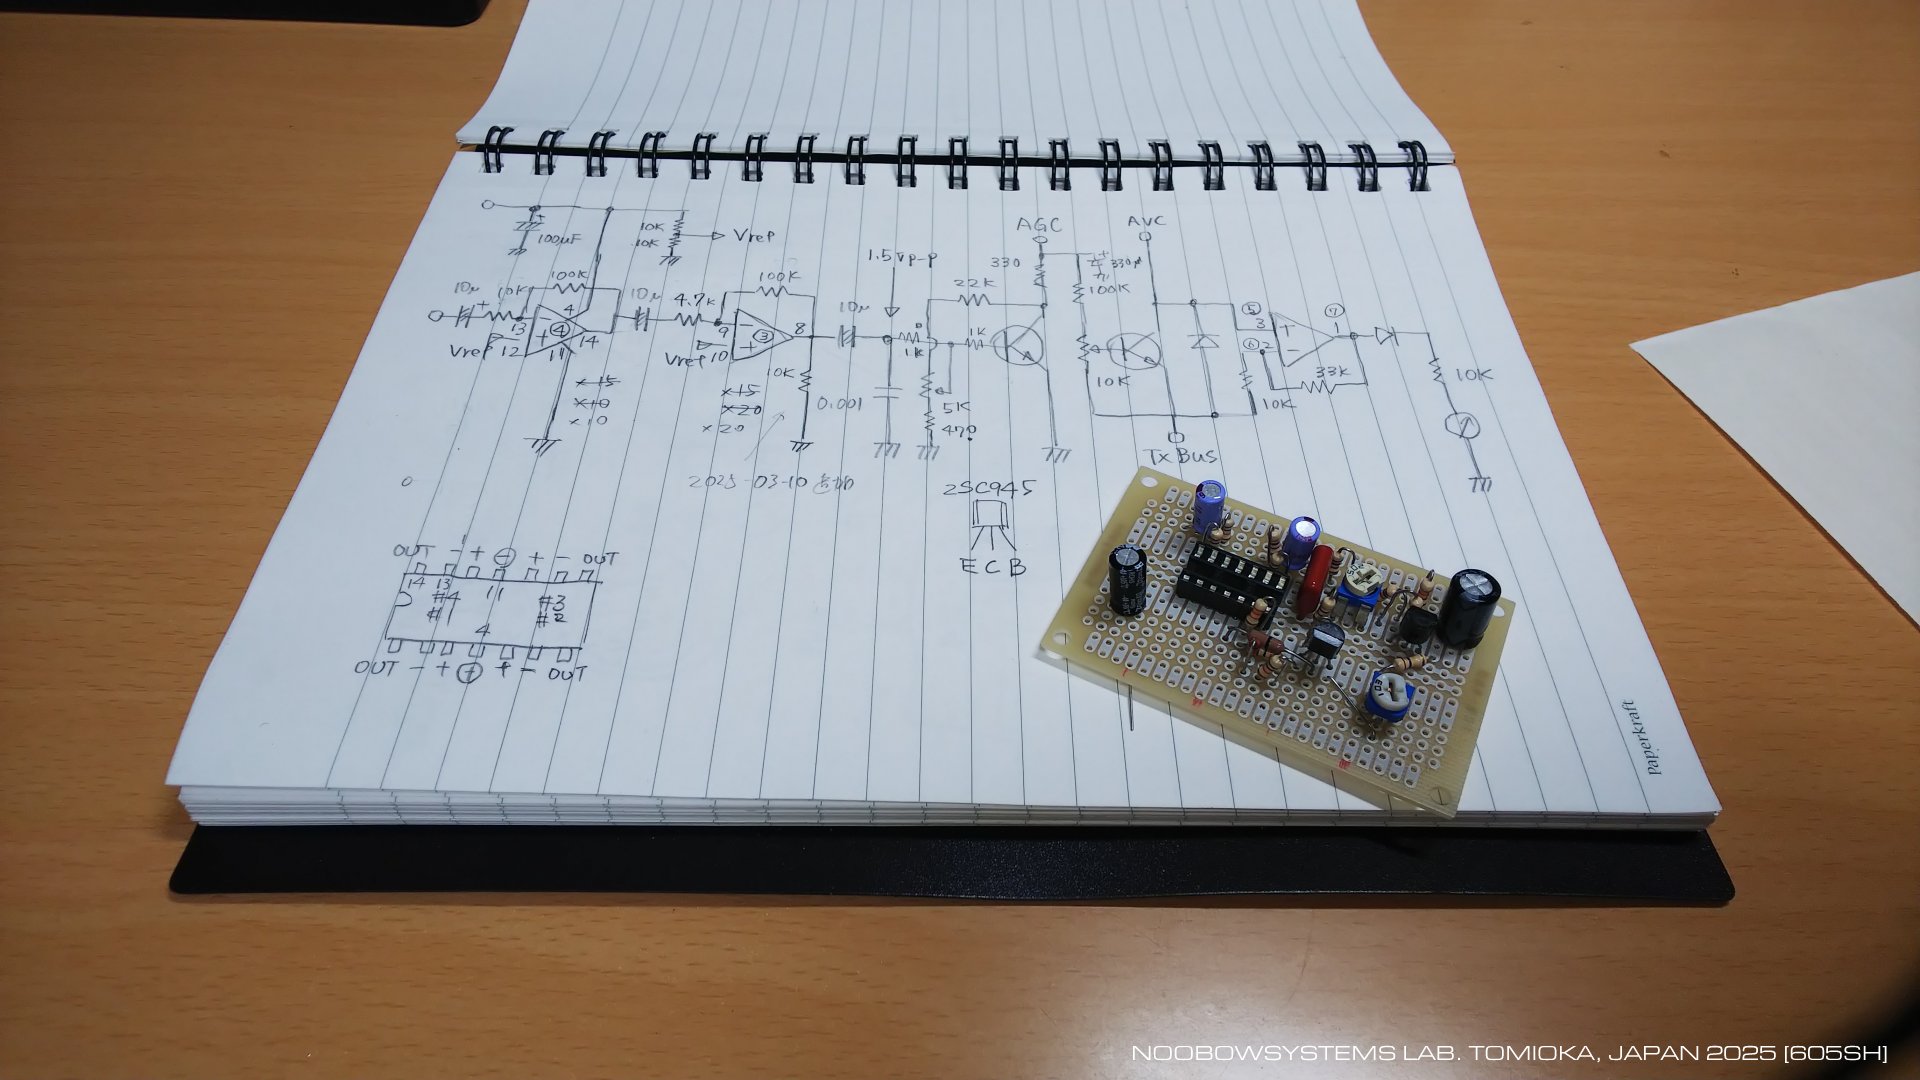 AGC
AVC
100µF
10K
10K
Vref
1.5Vp-p
330
330µ
100K
10µ
10K
100K
10µ
4.7K
100K
10µ
22K
100K
4
④
13
12
14
11
Vref
9
10
③
8
Vref
1K
1K
⑤
3
⑥
2
⑦
1
33K
10K
10K
10K
10K
×15
×10
×10
×15
×20
×20
0.001
5K
470
Tx Bus
2025-03-10 追加
2SC945
E C B
OUT - + ⊕ + - OUT
14 13 11
#4 #3
#1 #2
4
OUT - + ⊕ + - OUT
Paperkraft
NOOBOWSYSTEMS LAB. TOMIOKA, JAPAN 2025 [605SH]